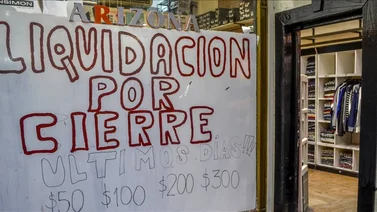 NSIMON
ARIZONA
LIQUIDACION
POR
CIERRE
ULTIMOS DÍAS!!!
$50 $100 $200 $300